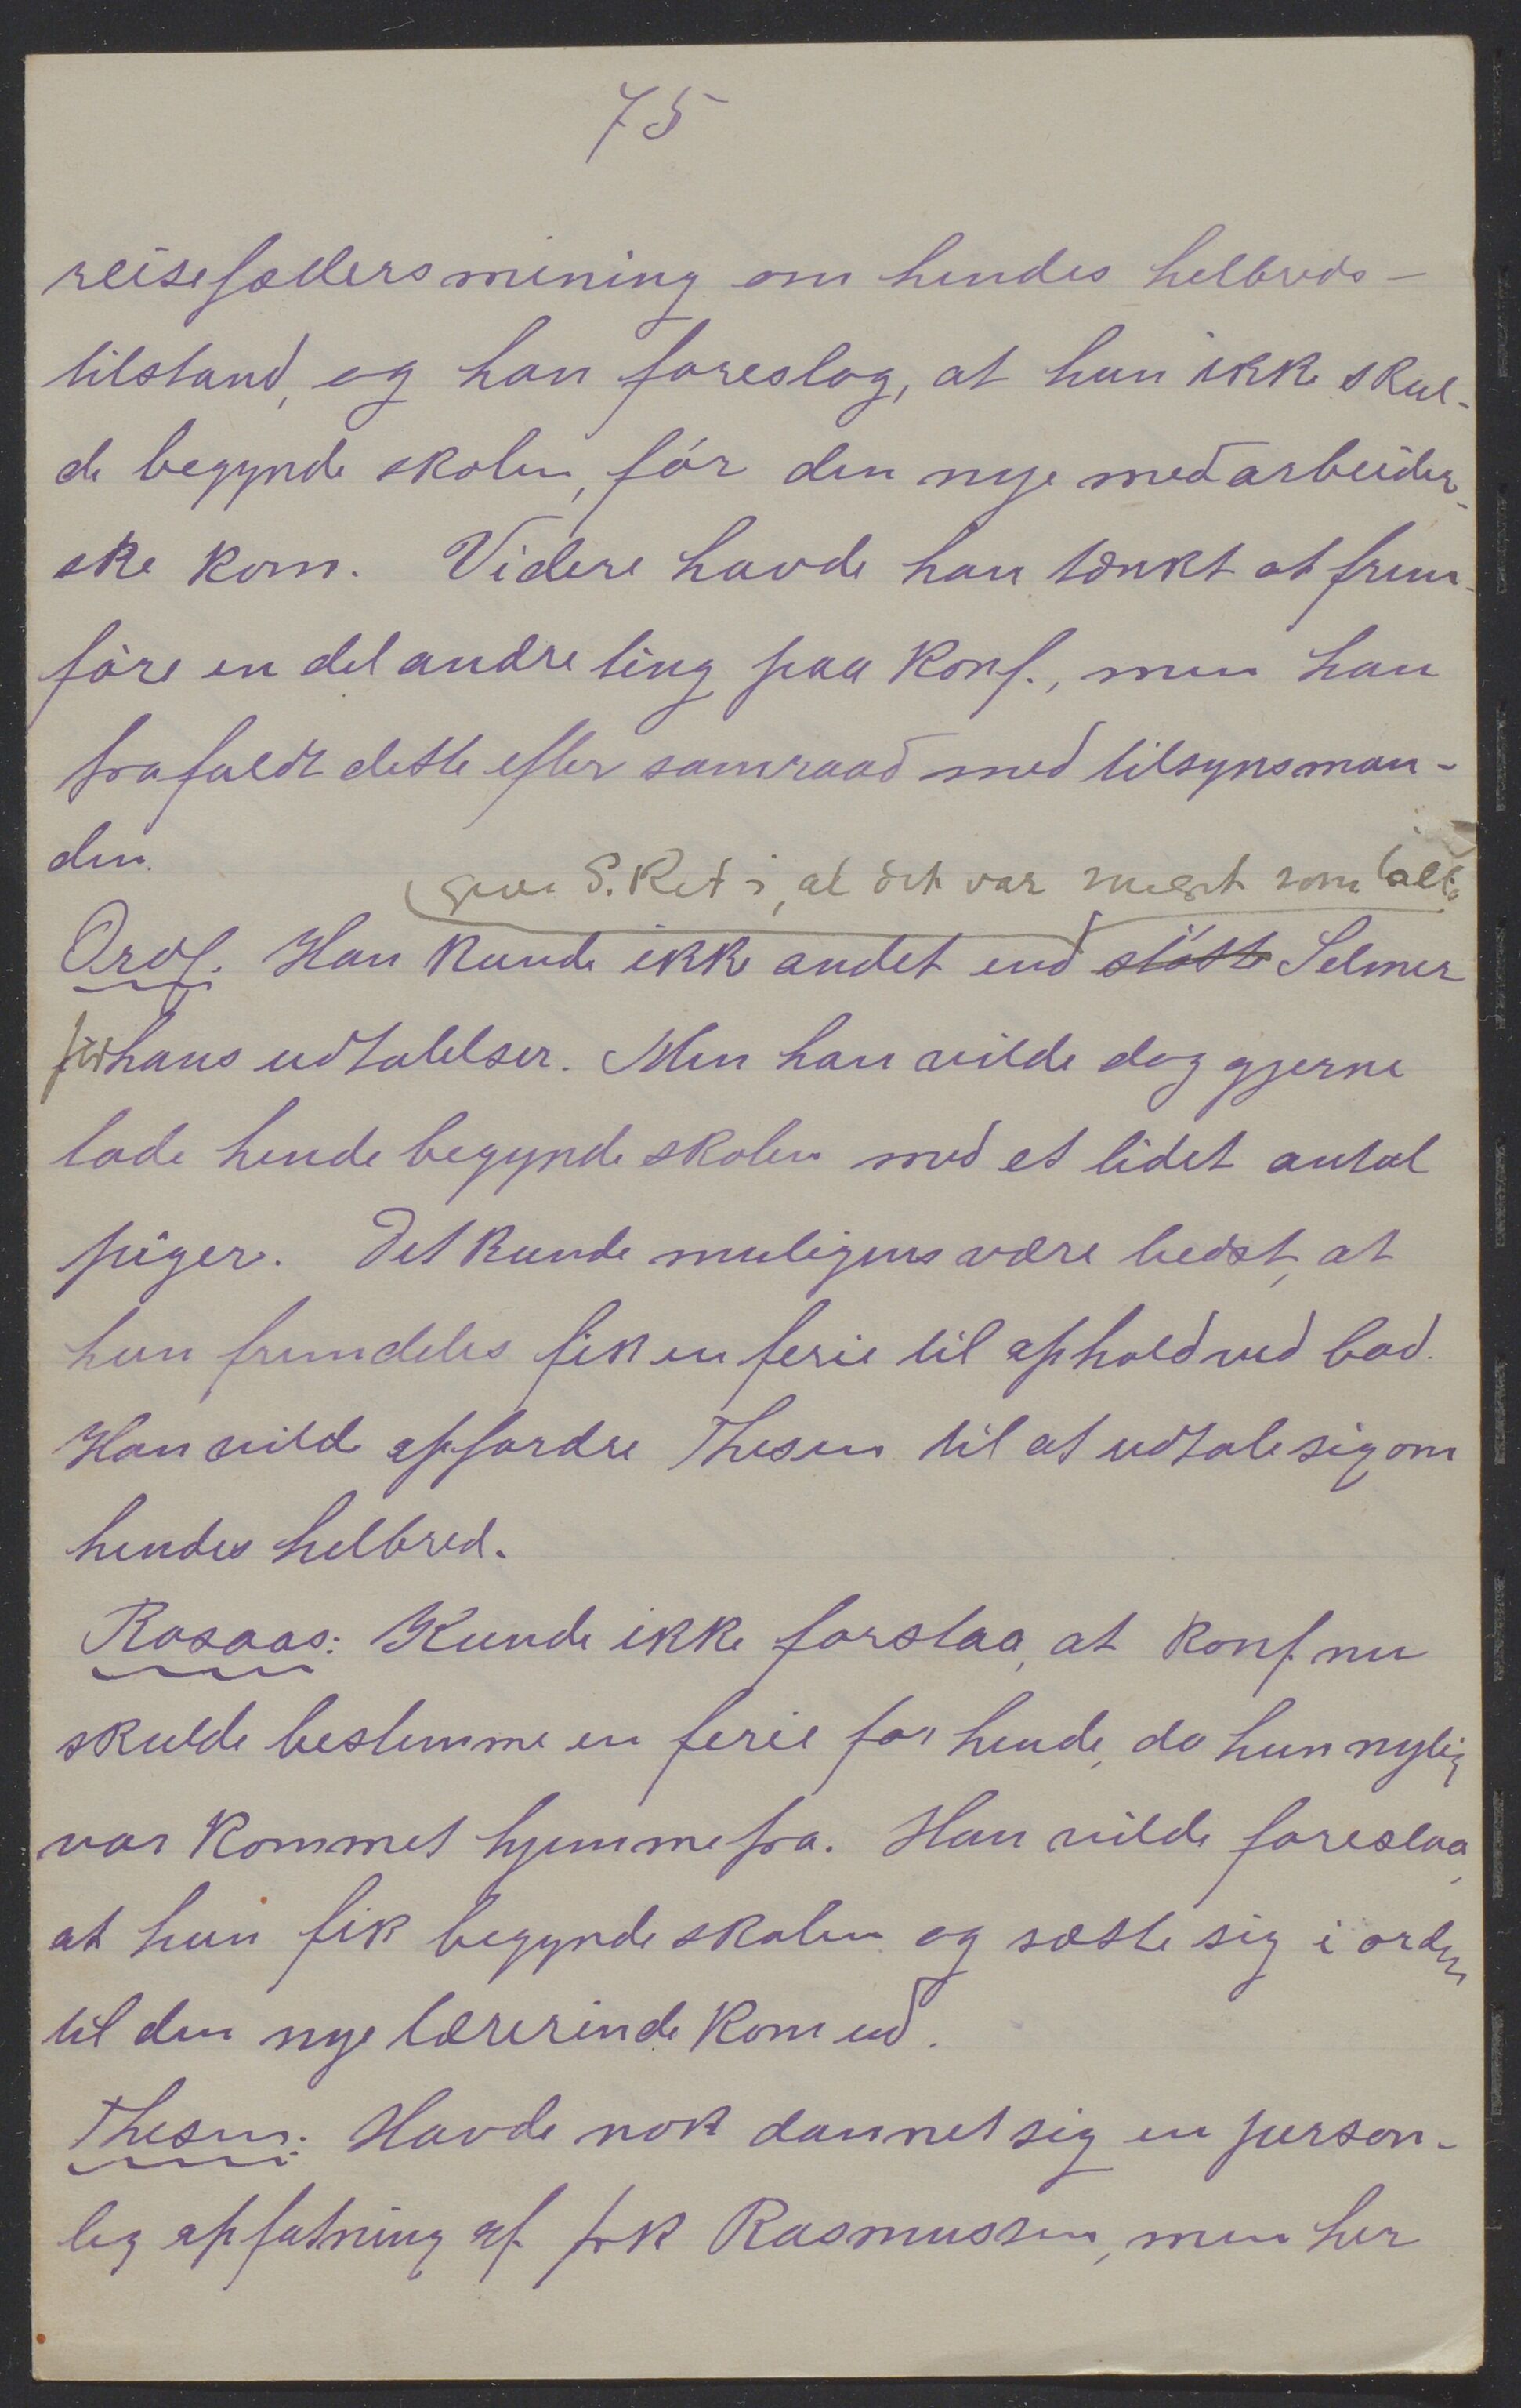 75
reisefællers mening om hendes helbreds-
tilstand, og han foreslog, at hun ikke skul-
de begynde skolen, før den nye medarbeider-
ske kom. Videre havde han tænkt at frem-
føre en del andre ting paa Konf., men han
frafaldt dette efter samraad med tilsynsman-
den.
give S. Ret i, at det var meget som talte
Ordf. Han kunde ikke andet end støtte Selmer
for hans udtalelser. Men han vilde dog gjerne
lade hende begynde skolen med et lidet antal
piger. Det kunde muligens være bedst, at
hun fremdeles fik en ferie til ophold ved bad.
Han vilde opfordre Thesen til at udtale sig om
hendes helbred.
Rosaas: Kunde ikke forstaa, at Konf. nu
skulde bestemme en ferie for hende, da hun nylig
var kommet hjemmefra. Han vilde foreslaa,
at hun fik begynde skolen og sætte sig i orden
til den nye lærerinde kom ud.
Thesen: Havde nok dannet sig en person-
lig opfatning af frk Rasmussen, men her